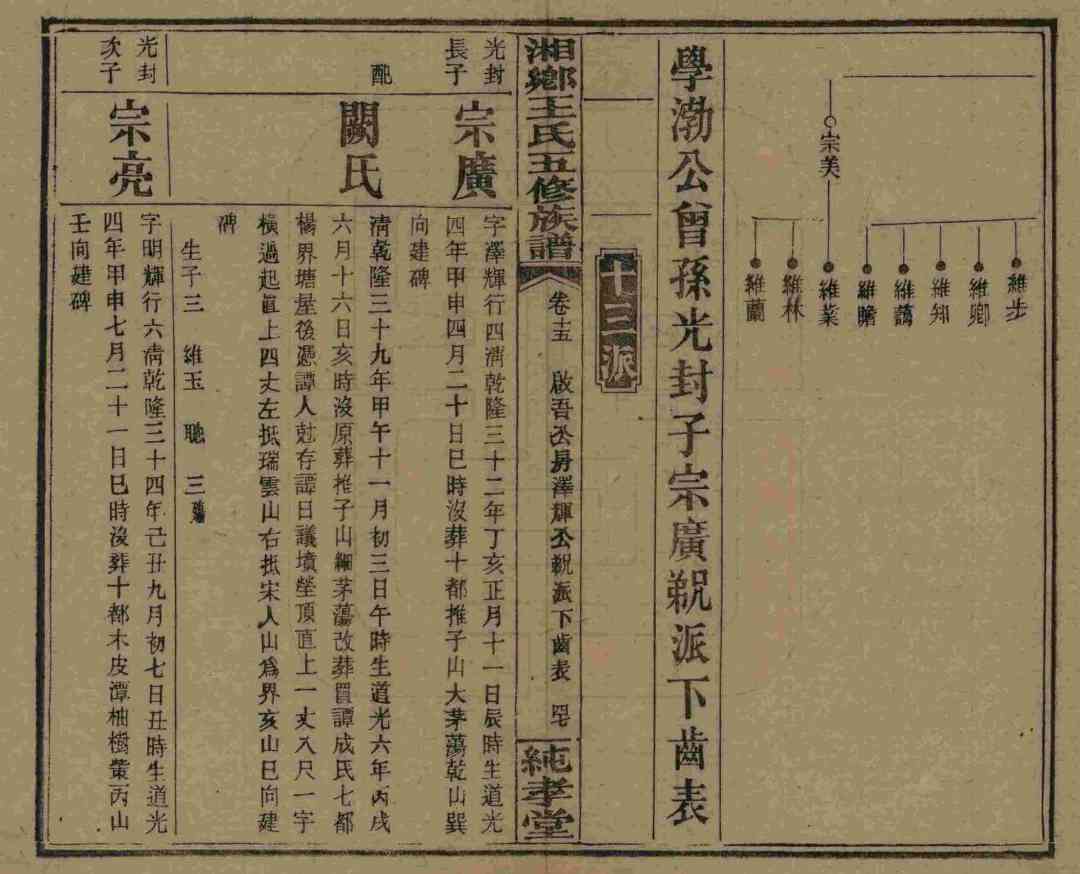 宗美
維步
維鄉
維知
維藹
維瞻
維藥
維林
維蘭
學渤公曾孫光封子宗廣覜派下齒表
十三派
湘鄉王氏五修族譜
卷十五
啟吾公房澤輝公覜派下齒表
純孝堂
光封
長子
宗廣
字澤輝行四清乾隆三十二年丁亥正月十一日辰時生道光
四年甲申四月二十日巳時沒葬十都推子山大茅蕩乾山巽
向建碑
配
闕氏
清乾隆三十九年甲午十一月初三日午時生道光六年丙戌
六月十六日亥時沒原葬推子山細茅蕩改葬買譚成氏七都
楊界塘屋後憑譚人兙存譚日議墳塋頂直上一丈八尺一字
橫過起眞上四丈左抵瑞雲山右抵宋人山為界亥山巳向建
碑
生子三 維玉 聰 三
光封
次子
宗亮
字明輝行六清乾隆三十四年己丑九月初七日丑時生道光
四年甲申七月二十一日巳時沒葬十都木皮潭柚樹䕦丙山
壬向建碑